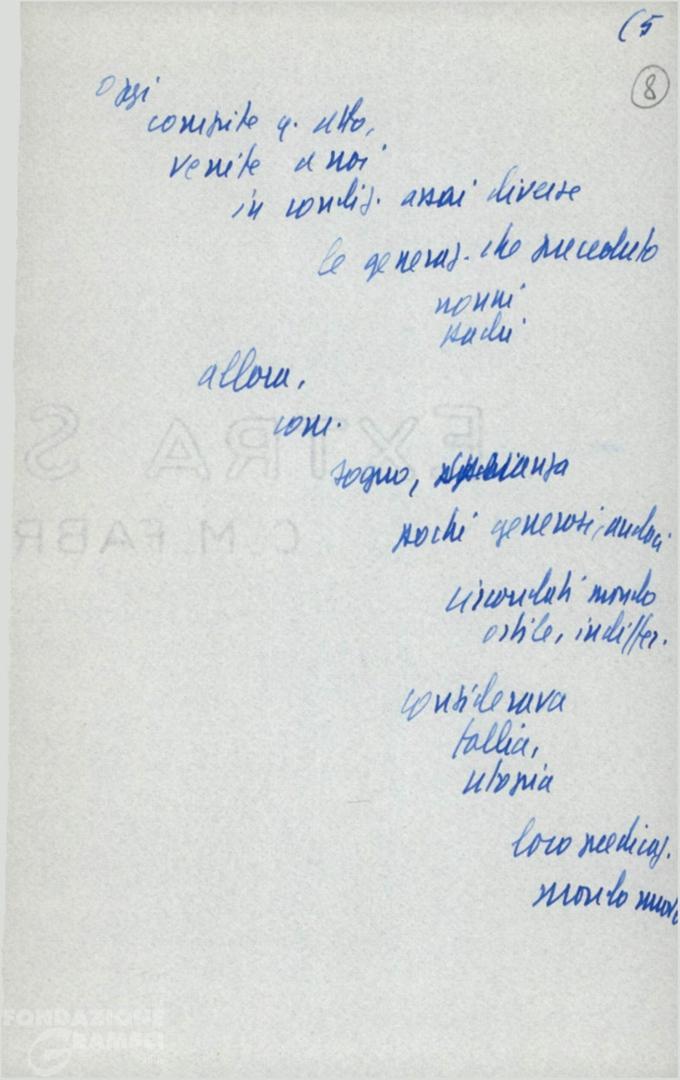 (5
8
oggi
compite q. atto,
venite a noi
in condiz. assai diverse
le generaz. che preceduto
nonni
padri
allora,
com.
sogno, speranza
pochi generosi, audaci
circondati mondo
ostile, indiffer.
considerava
follia,
utopia
loro predicaz.
mondo nuovo
EXTRA S
C.M.FABR
FONDAZIONE
GRAMSCI